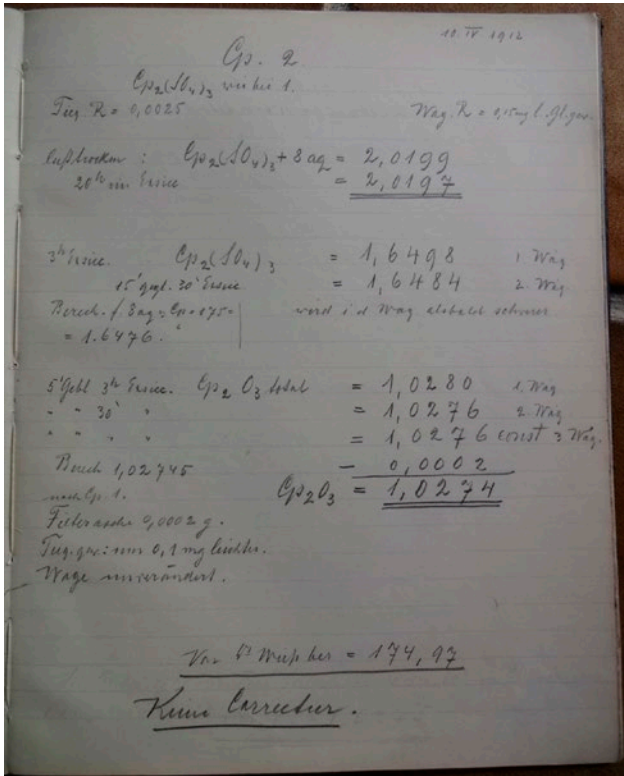 10. IV 1912
Cp. 2
Cp₂(SO₄)₃ wie bei 1.
Tieg. R = 0,0025 Wag. R = 0,15 mg l. Gl. gew.
lufttrocken : Cp₂(SO₄)₃ + 8 aq = 2,0199
20ʰ im Exsicc = 2,0197
3ʰ Exsicc. Cp₂(SO₄)₃ = 1,6498 1 Wäg
15' gegl. 30' Exsicc = 1,6484 2. Wäg
Berech. f. 8 aq u. Cp = 175 = wird i d Wag alsbald schwerer
= 1.6476.
5' Gebl 3ʰ Exsicc. Cp₂O₃ total = 1,0280 1. Wäg
" " 30' " = 1,0276 2 Wäg
" " " " = 1,0276 const 3 Wäg.
Berech 1,02745 − 0,0002
nach Cp. 1. Cp₂O₃ = 1,0274
Filterasche 0,0002 g.
Tieg. gew: nur 0,1 mg leichter.
Wage unverändert.
= 174,97
Keine Correctur.